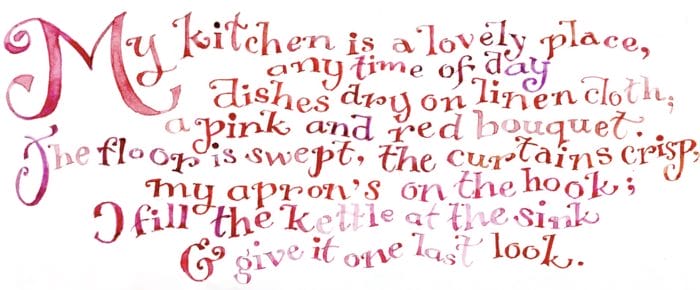 My kitchen is a lovely place,
any time of day
dishes dry on linen cloth;
a pink and red bouquet.
The floor is swept, the curtains crisp,
my apron's on the hook;
I fill the kettle at the sink
& give it one last look.